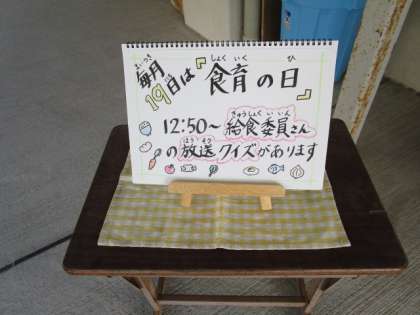 毎月19日は『食育の日』
12:50〜給食委員さん
の放送クイズがあります